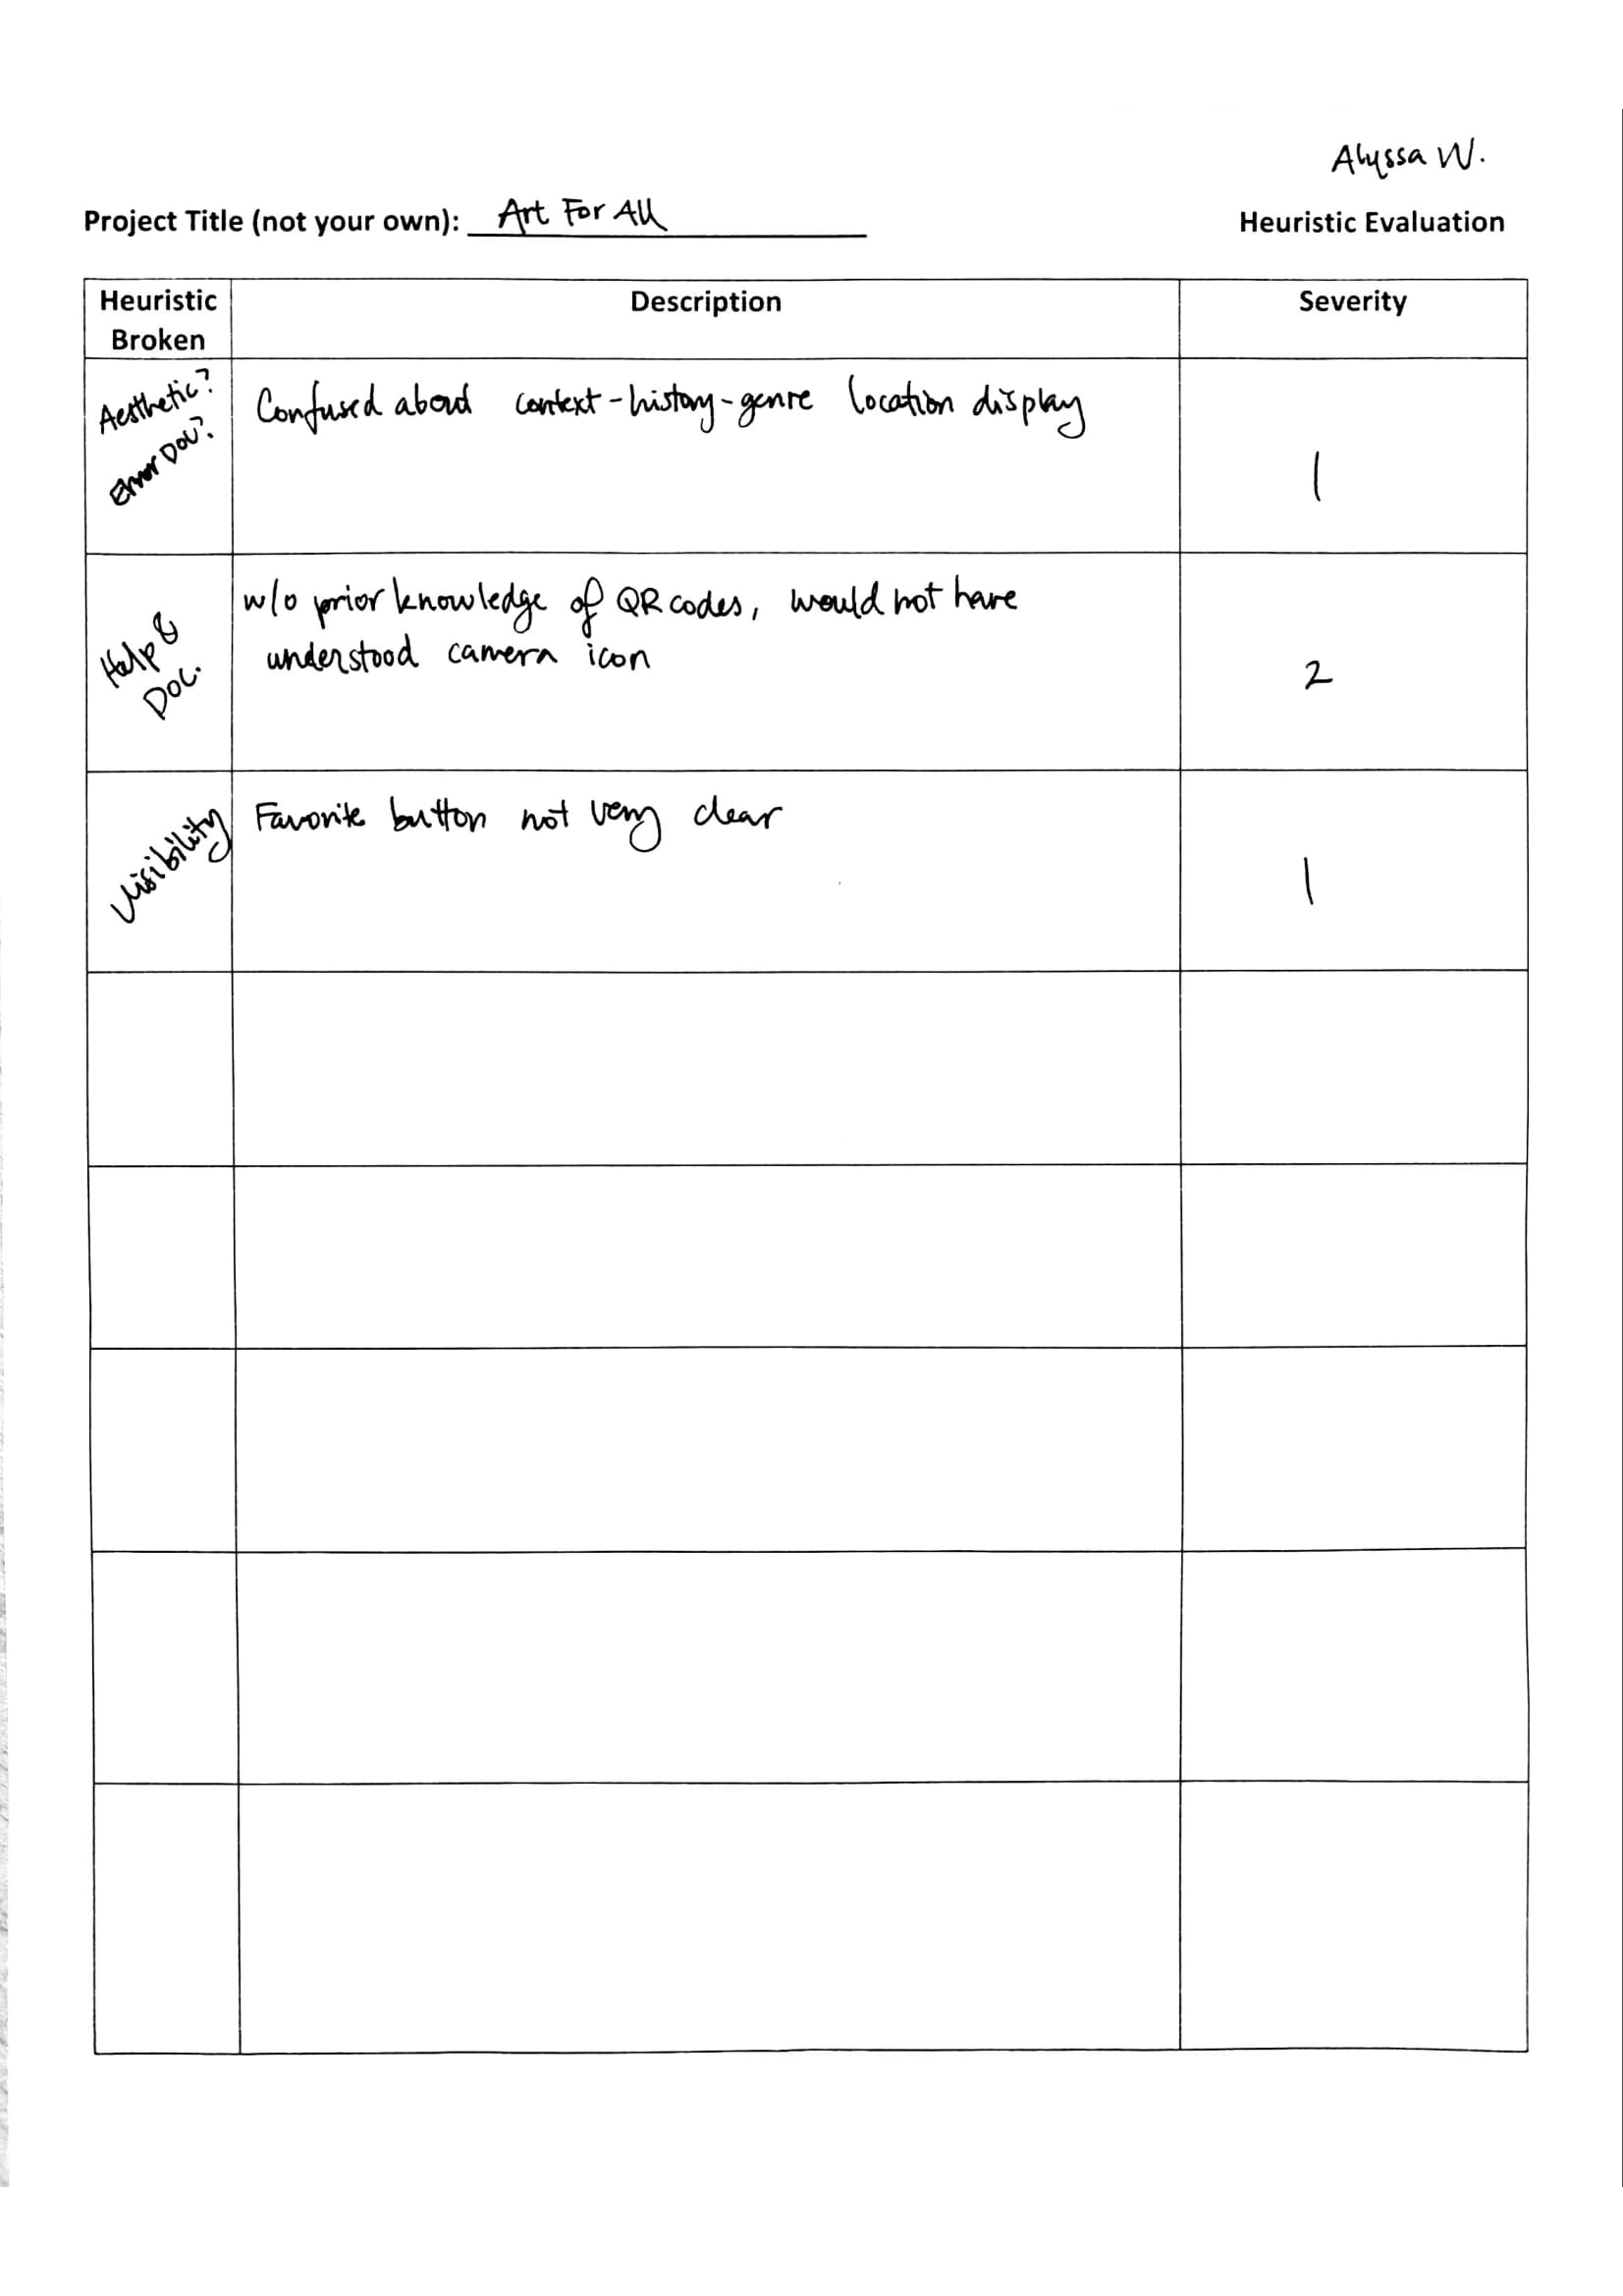 Alyssa W.
Project Title (not your own): Art For All
Heuristic Evaluation
Heuristic Broken
Description
Severity
Aesthetic?
Error Doc?
Confused about context-history-genre location display
1
Help &
Doc.
w/o prior knowledge of QR codes, would not have
understood camera icon
2
Visibility
Favorite button not very clear
1